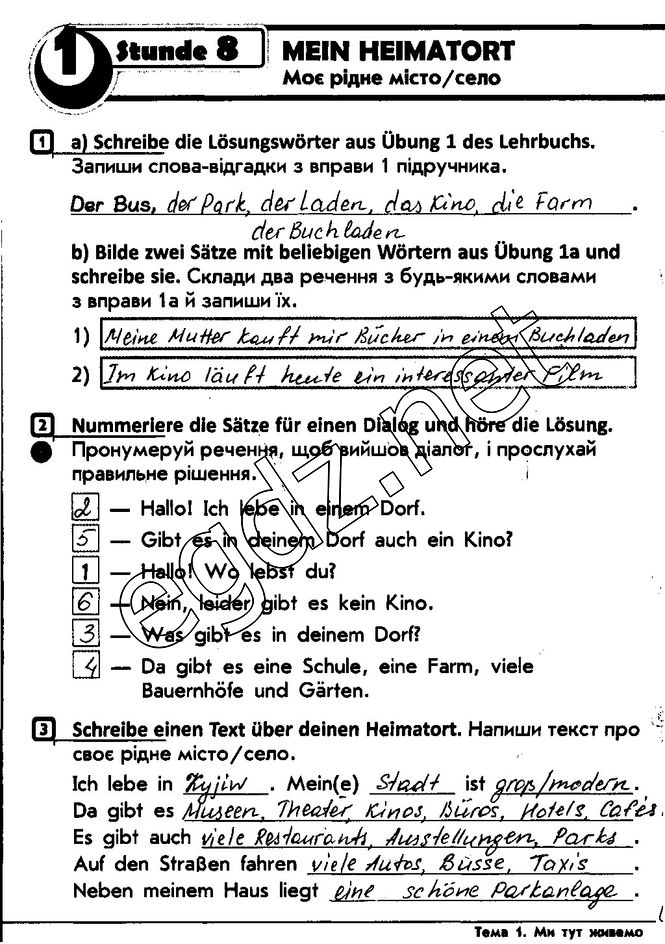 1 Stunde 8 MEIN HEIMATORT
Моє рідне місто/село
1 a) Schreibe die Lösungswörter aus Übung 1 des Lehrbuchs.
Запиши слова-відгадки з вправи 1 підручника.
Der Bus, der Park, der Laden, das Kino, die Farm.
der Buchladen
b) Bilde zwei Sätze mit beliebigen Wörtern aus Übung 1a und
schreibe sie. Склади два речення з будь-якими словами
з вправи 1а й запиши їх.
1) Meine Mutter kauft mir Bücher in einem Buchladen
2) Im Kino läuft heute ein interessanter Film
2 Nummeriere die Sätze für einen Dialog und höre die Lösung.
Пронумеруй речення, щоб вийшов діалог, і прослухай
правильне рішення.
2 — Hallo! Ich lebe in einem Dorf.
5 — Gibt es in deinem Dorf auch ein Kino?
1 — Hallo! Wo lebst du?
6 — Nein, leider gibt es kein Kino.
3 — Was gibt es in deinem Dorf?
4 — Da gibt es eine Schule, eine Farm, viele
Bauernhöfe und Gärten.
egdz.net
3 Schreibe einen Text über deinen Heimatort. Напиши текст про
своє рідне місто/село.
Ich lebe in Kyjiw. Mein(e) Stadt ist groß/modern.
Da gibt es Museen, Theater, Kinos, Büros, Hotels, Cafés.
Es gibt auch viele Restaurants, Ausstellungen, Parks.
Auf den Straßen fahren viele Autos, Busse, Taxis.
Neben meinem Haus liegt eine schöne Parkanlage.
Тема 1. Ми тут живемо